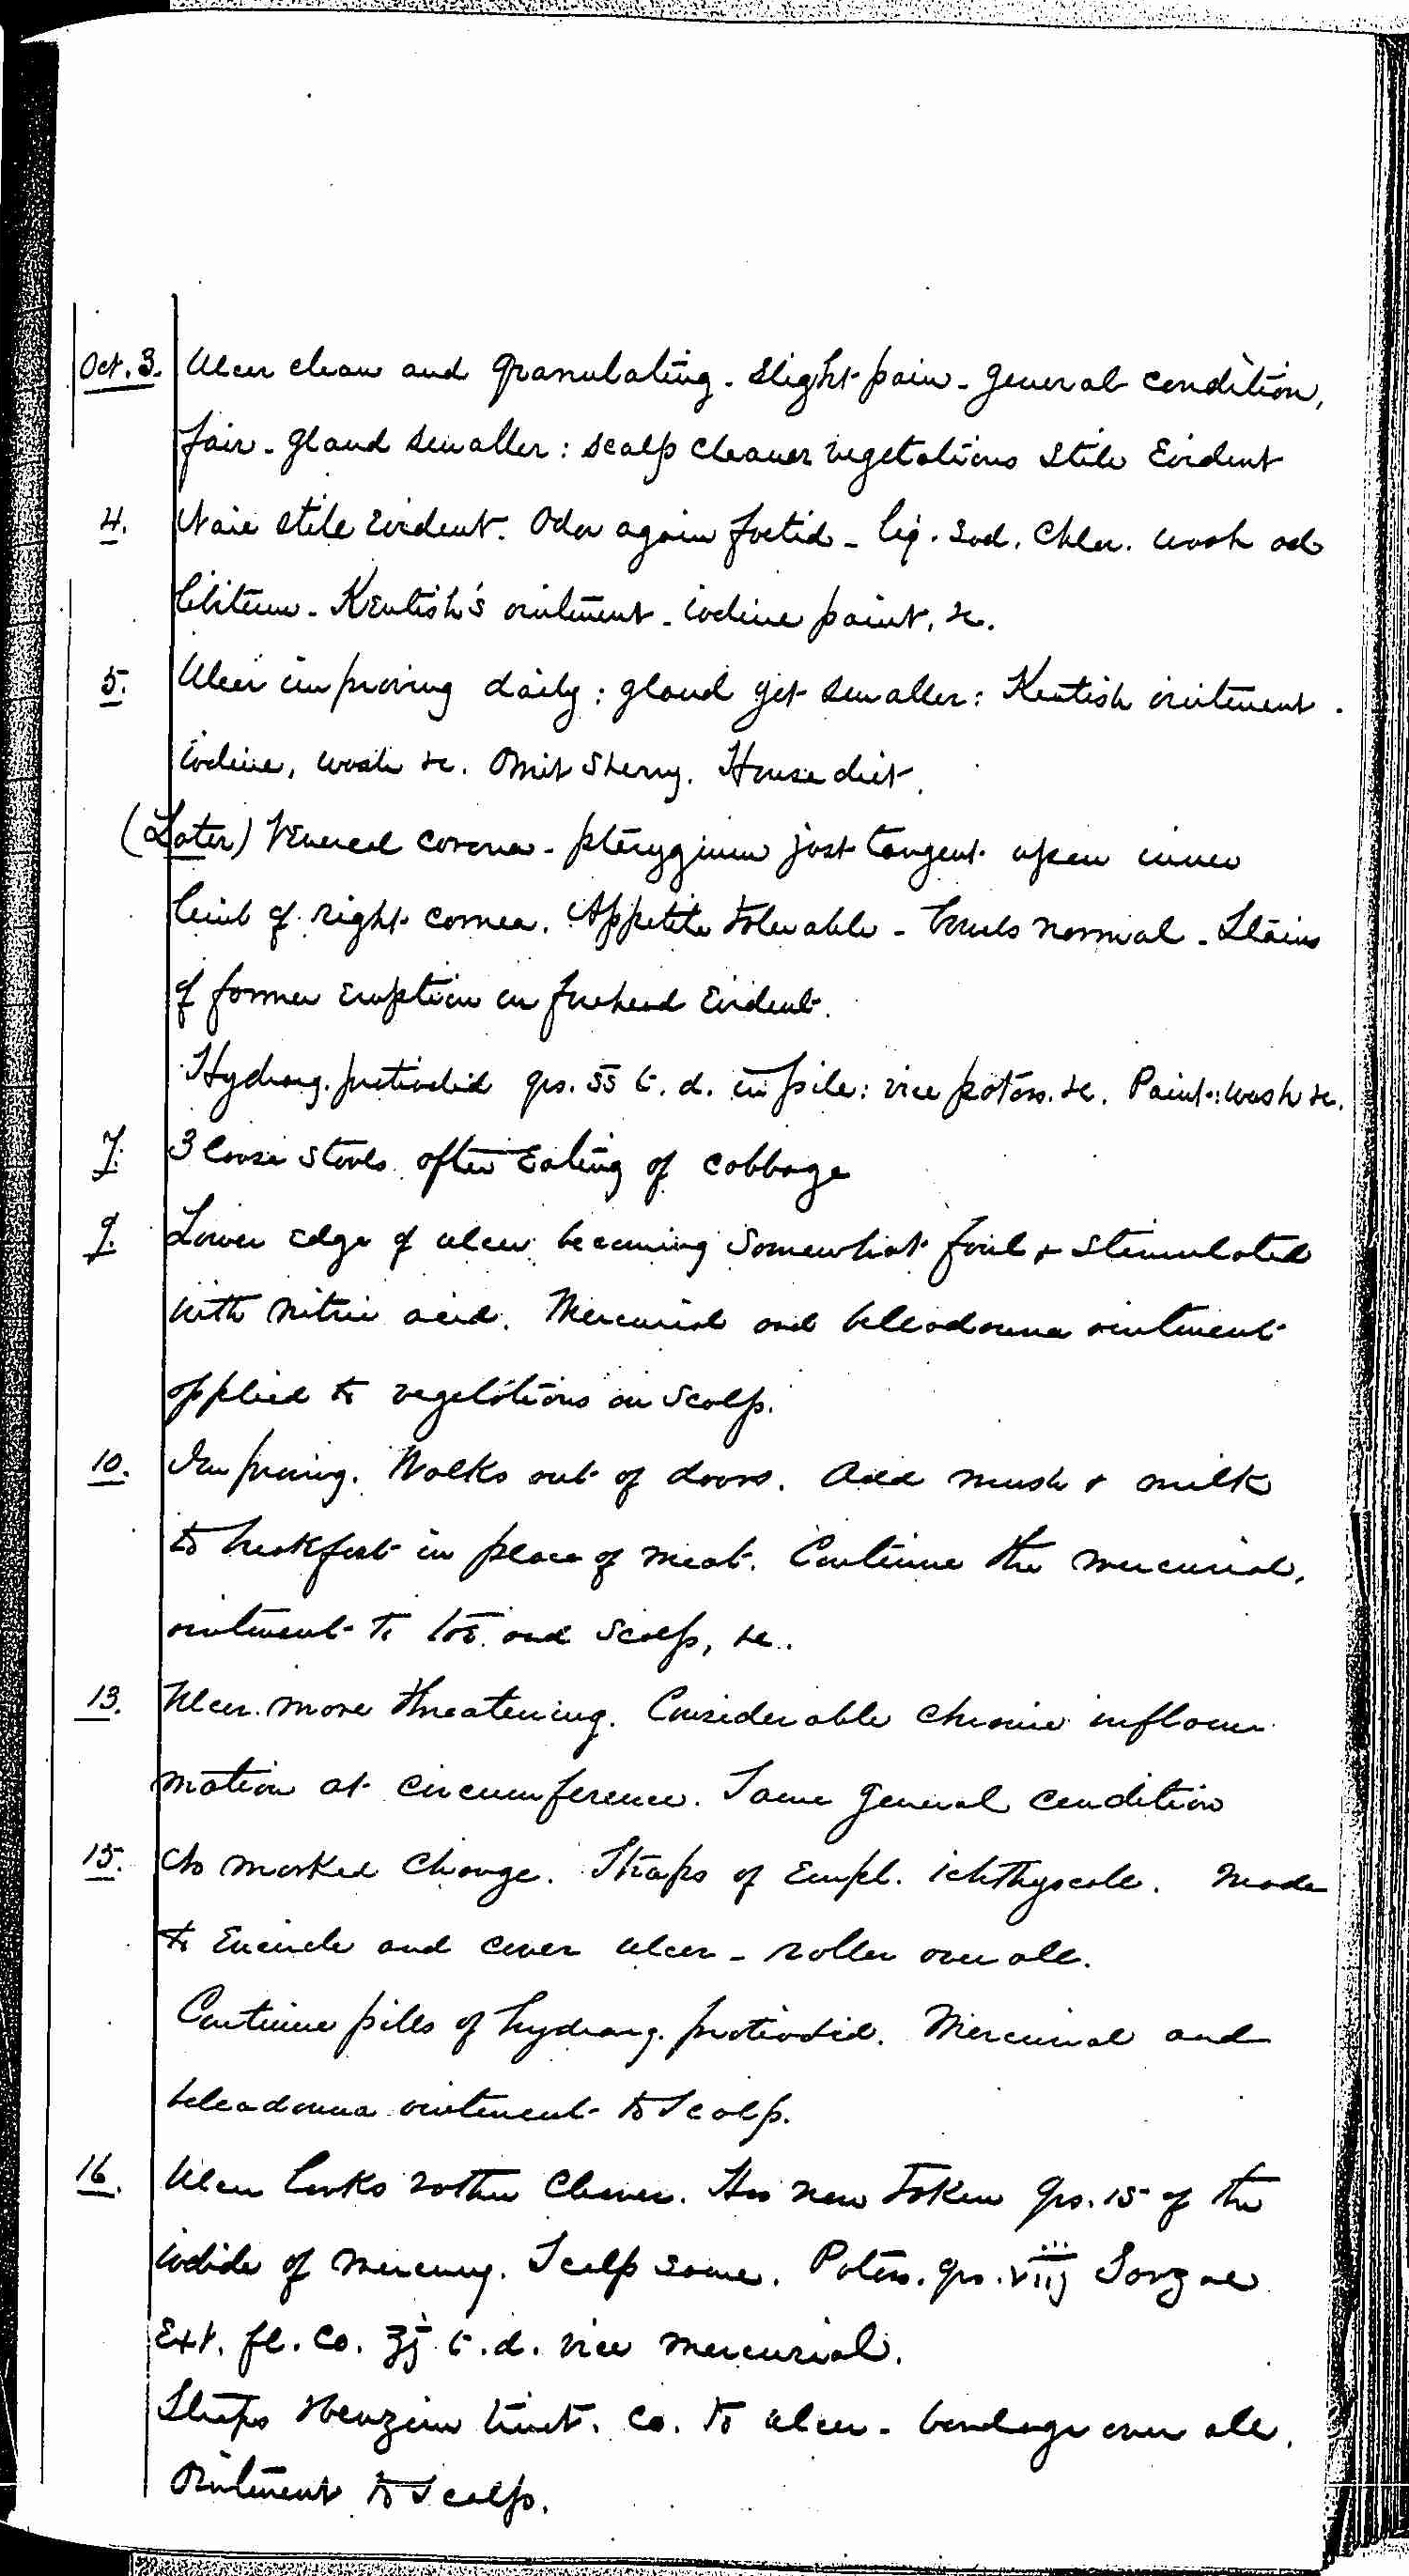 Oct. 3. Ulcer clean and granulating - slight pain - general condition,
fair - gland smaller: scalp cleaner vegetations still Evident
4. still Evident. Odor again foetid - liq. Sod. Chlor. wash ad
libitum - Kentish's ointment - iodine paint, &c.
5. Ulcer improving daily: gland yet smaller: Kentish ointment.
iodine, wash &c. Omit sherry. House diet.
(Later) Venereal corona - pterygium just tangent upon inner
limb of right cornea. Appetite tolerable - bowels normal - Stains
of former Eruption on forehead Evident.
Hydrarg. protiodid grs. ss t. d. in pill: vice potass. &c. Paint: wash &c.
7. 3 loose stools after Eating of cabbage
9. Lower Edge of ulcer becoming somewhat foul & stimulated
with nitric acid. Mercurial and belladonna ointment
applied to vegetations on scalp.
10. Improving. Walks out of doors. Add mush & milk
to breakfast in place of meat. Continue the mercurial,
ointment to toe and scalp, &c.
13. Ulcer more threatening. Considerable chronic inflam
mation at circumference. Same general condition
15. No marked change. Straps of Empl. ichthyocole. made
to Encircle and cover ulcer - roller over all.
Continue pills of hydrarg. protiodid. Mercurial and
belladonna ointment to Scalp.
16. Ulcer looks rather cleaner. Has now taken grs. 15 of the
iodide of mercury. Scalp same. Potass. grs. viij
Ext. fl. Co. ʒj t. d. vice mercurial.
Straps Benzoin tinct. Co. to ulcer - bandage over all.
Ointment to Scalp.